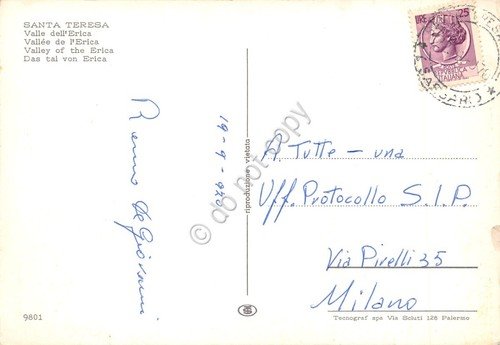 SANTA TERESA
Valle dell'Erica
Vallée de l'Erica
Valley of the Erica
Das tal von Erica
LIRE 25
REPUBBLICA
ITALIANA
19-9-
De Giovanni
riproduzione vietata
© do not copy
A Tutte - una
Uff. Protocollo S.I.P.
Via Pirelli 35
Milano
9801
Tecnograf spa Via Scluti 128 Palermo